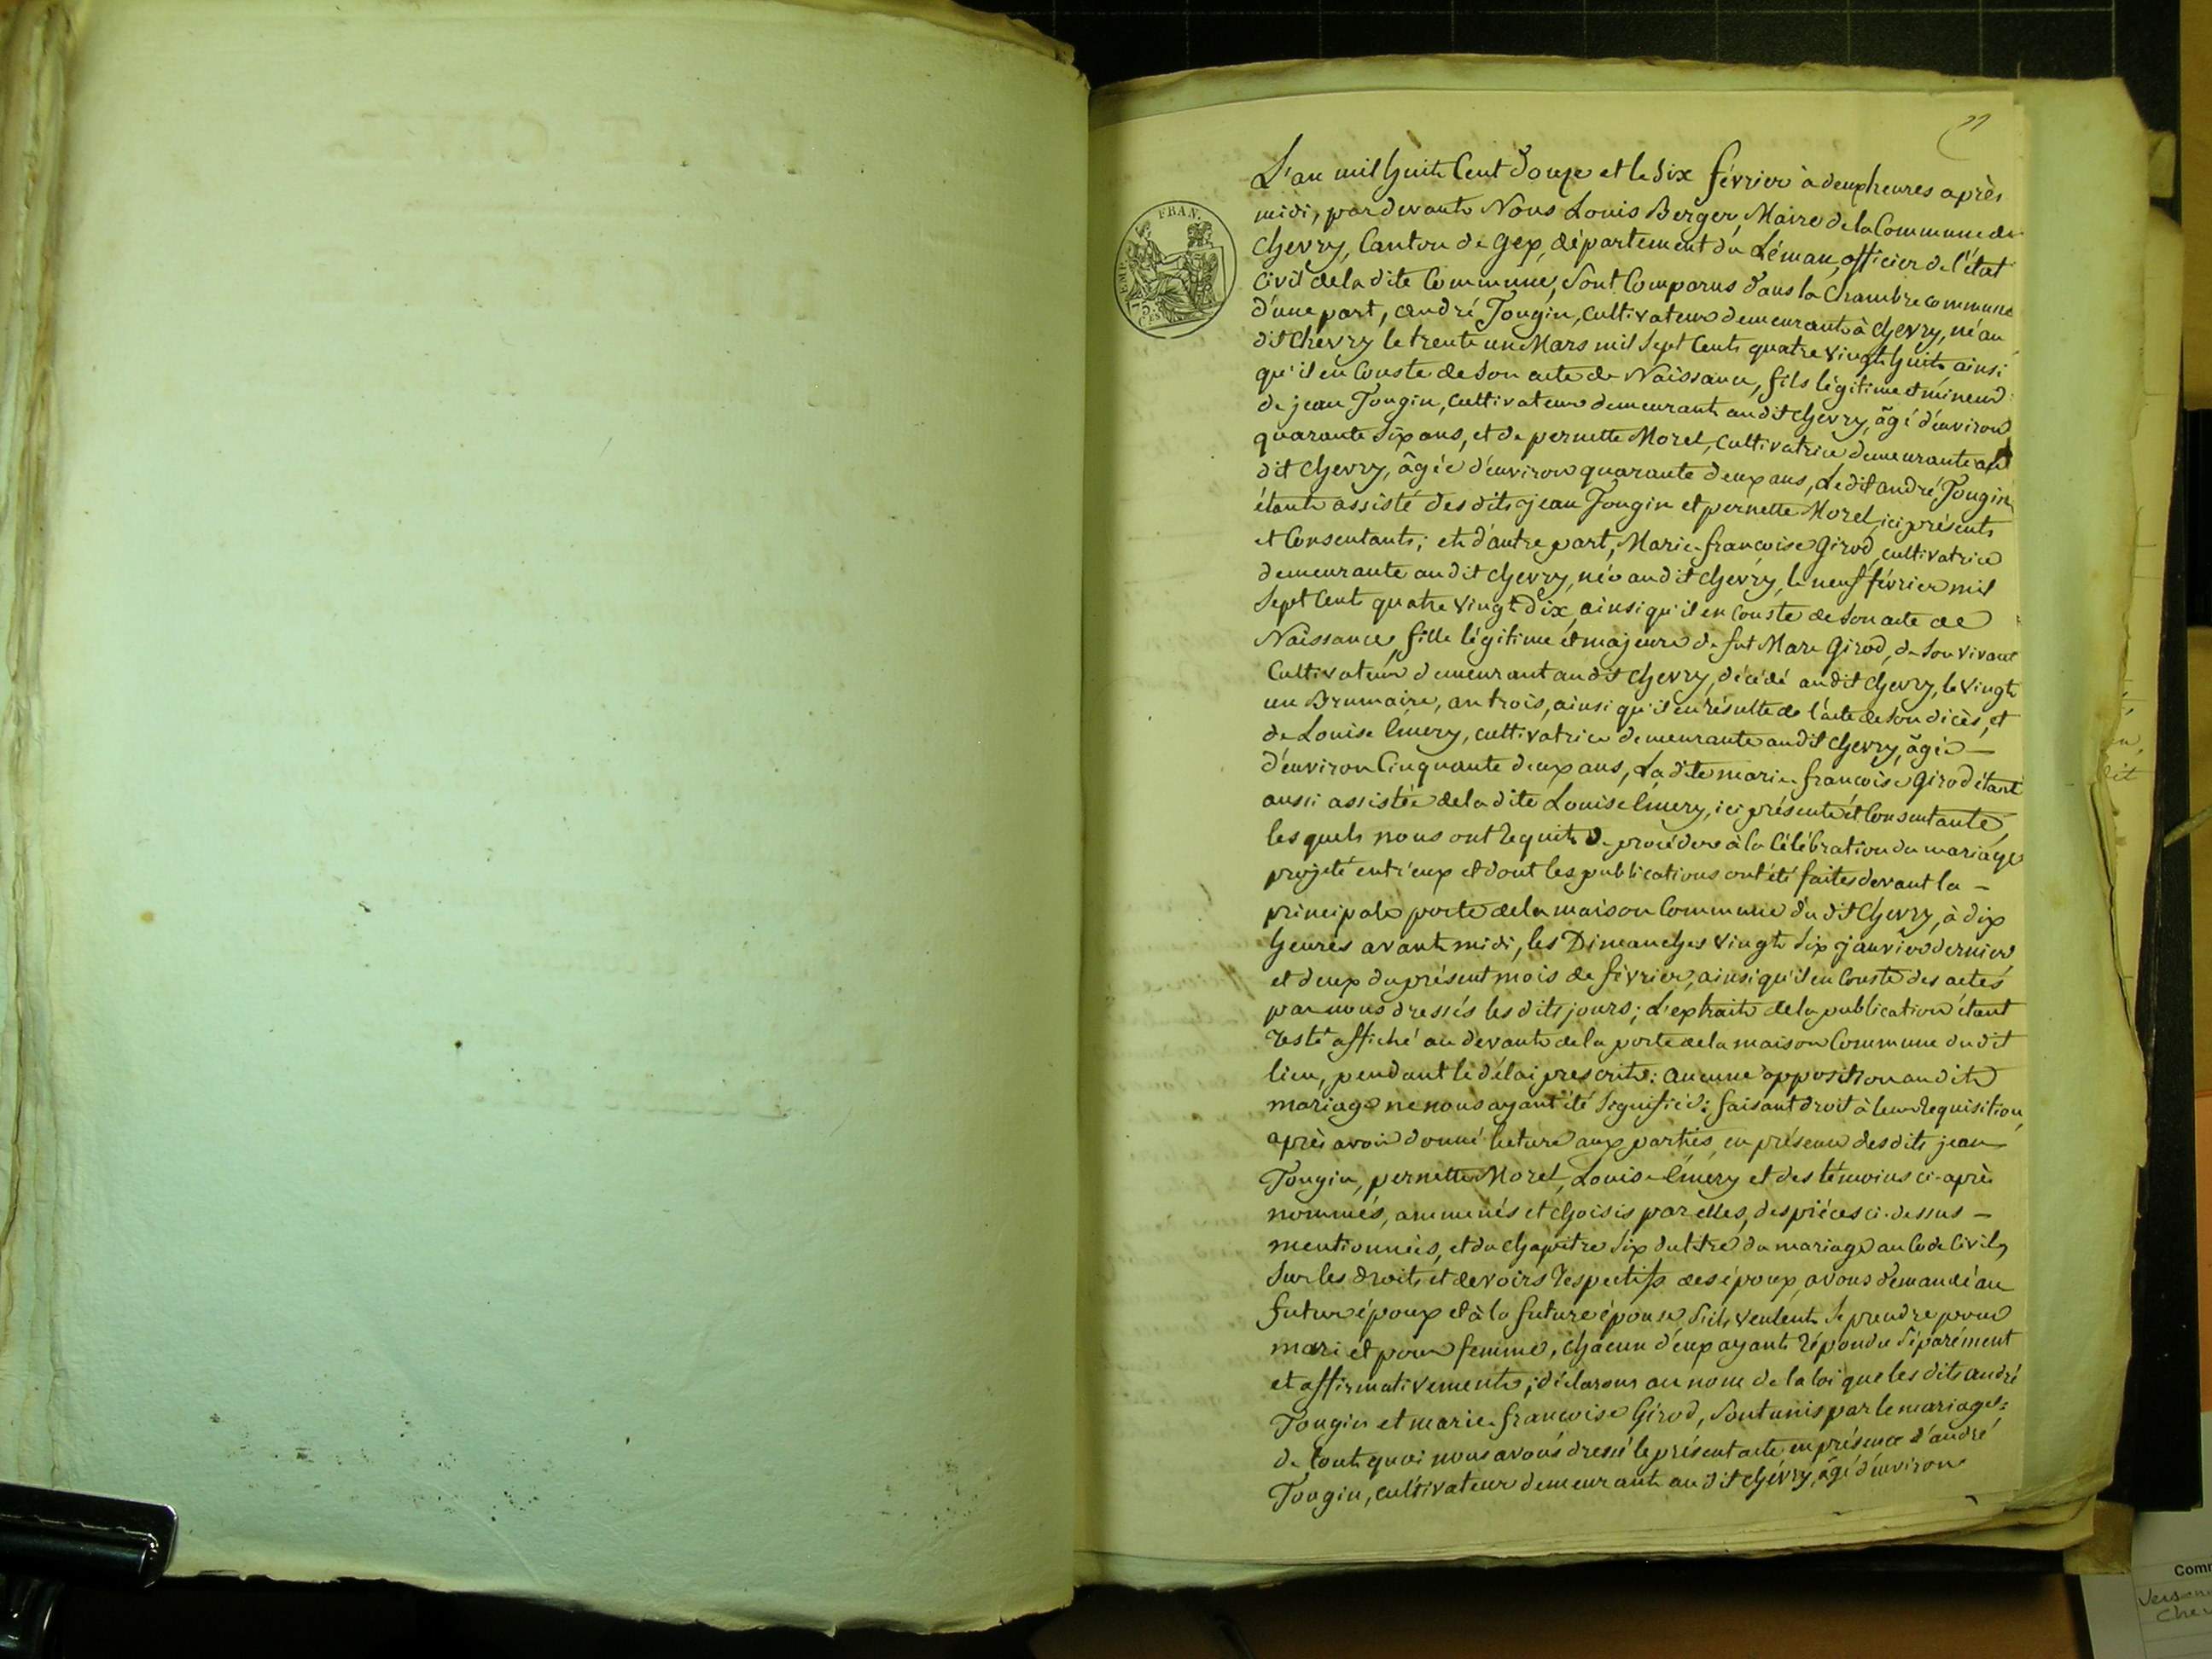 L'an mil huit Cent Douze et le Six février à deux heures après
midi, pardevant Nous Louis Berger, Maire de la Commune de
Chevry, Canton de Gex, département du Léman, officier de l'état
Civil de la dite Commune, Sont Comparus dans la Chambre commune
d'une part, andré Tougin, Cultivateur demeurant à Chevry, né au
dit Chevry le trente un Mars mil Sept Cent quatre vingt huit ainsi
qu'il en Conste de Son acte de Naissance, fils légitime et mineur
de jean Tougin, Cultivateur demeurant audit Chevry, âgé d'environ
quarante Six ans, et de pernette Morel, Cultivatrice demeurante au
dit Chevry, âgée d'environ quarante deux ans, Ledit andré Tougin
étant assisté des dits jean Tougin et pernette Morel, ici présents
et Consentants; et d'autre part, Marie françoise Girod, cultivatrice
demeurante audit Chevry, née audit Chevry, le neuf février mil
Sept Cent quatre vingt Dix, ainsi qu'il en Conste de Son acte de
Naissance, fille légitime et majeure de fut Marc Girod, de Son vivant
Cultivateur demeurant audit Chevry, décédé audit Chevry, le vingt
un Brumaire, an trois, ainsi qu'il en résulte de l'acte de Son dicès, et
de Louise Emery, cultivatrice demeurante audit Chevry, âgée —
d'environ Cinquante deux ans, La dite marie françoise Girod étant
aussi assistée de la dite Louise Emery, ici présente et Consentante,
lesquels nous ont requit de procéder à la Célébration du mariage
projeté entr'eux et dont les publications ont été faites devant la —
principale porte de la maison Commune du dit Chevry, à dix
heures avant midi, les Dimanches vingt Six janvier dernier
et deux du présent mois de février, ainsi qu'il en Conste des actes
par nous dressés les dits jours; L'extrait de la publication étant
resté affiché au devant de la porte de la maison Commune du dit
lieu, pendant le délai prescrit: aucune opposition audit
mariage ne nous ayant été Signifiée: faisant droit à leur requisition,
après avoir donné lecture aux parties, en présence des dits jean
Tougin, pernette Morel, Louise Emery et des témoins ci-après
nommés, ammenés et choisis par elles, des pièces ci-dessus —
mentionnées, et du chapitre Six du titre du mariage au Code Civil,
Sur les droits et devoirs respectifs des époux, avons demandé au
futur époux et à la future épouse, S'ils veulent Se prendre pour
mari et pour femme, chacun d'eux ayant répondu Séparément
et affirmativement; déclarons au nom de la loi que les dits andré
Tougin et marie françoise Girod, Sont unis par le mariage:
de tout quoi nous avons dressé le présent acte en présence d'andré
Tougin, cultivateur demeurant audit Chevry, âgé d'environ